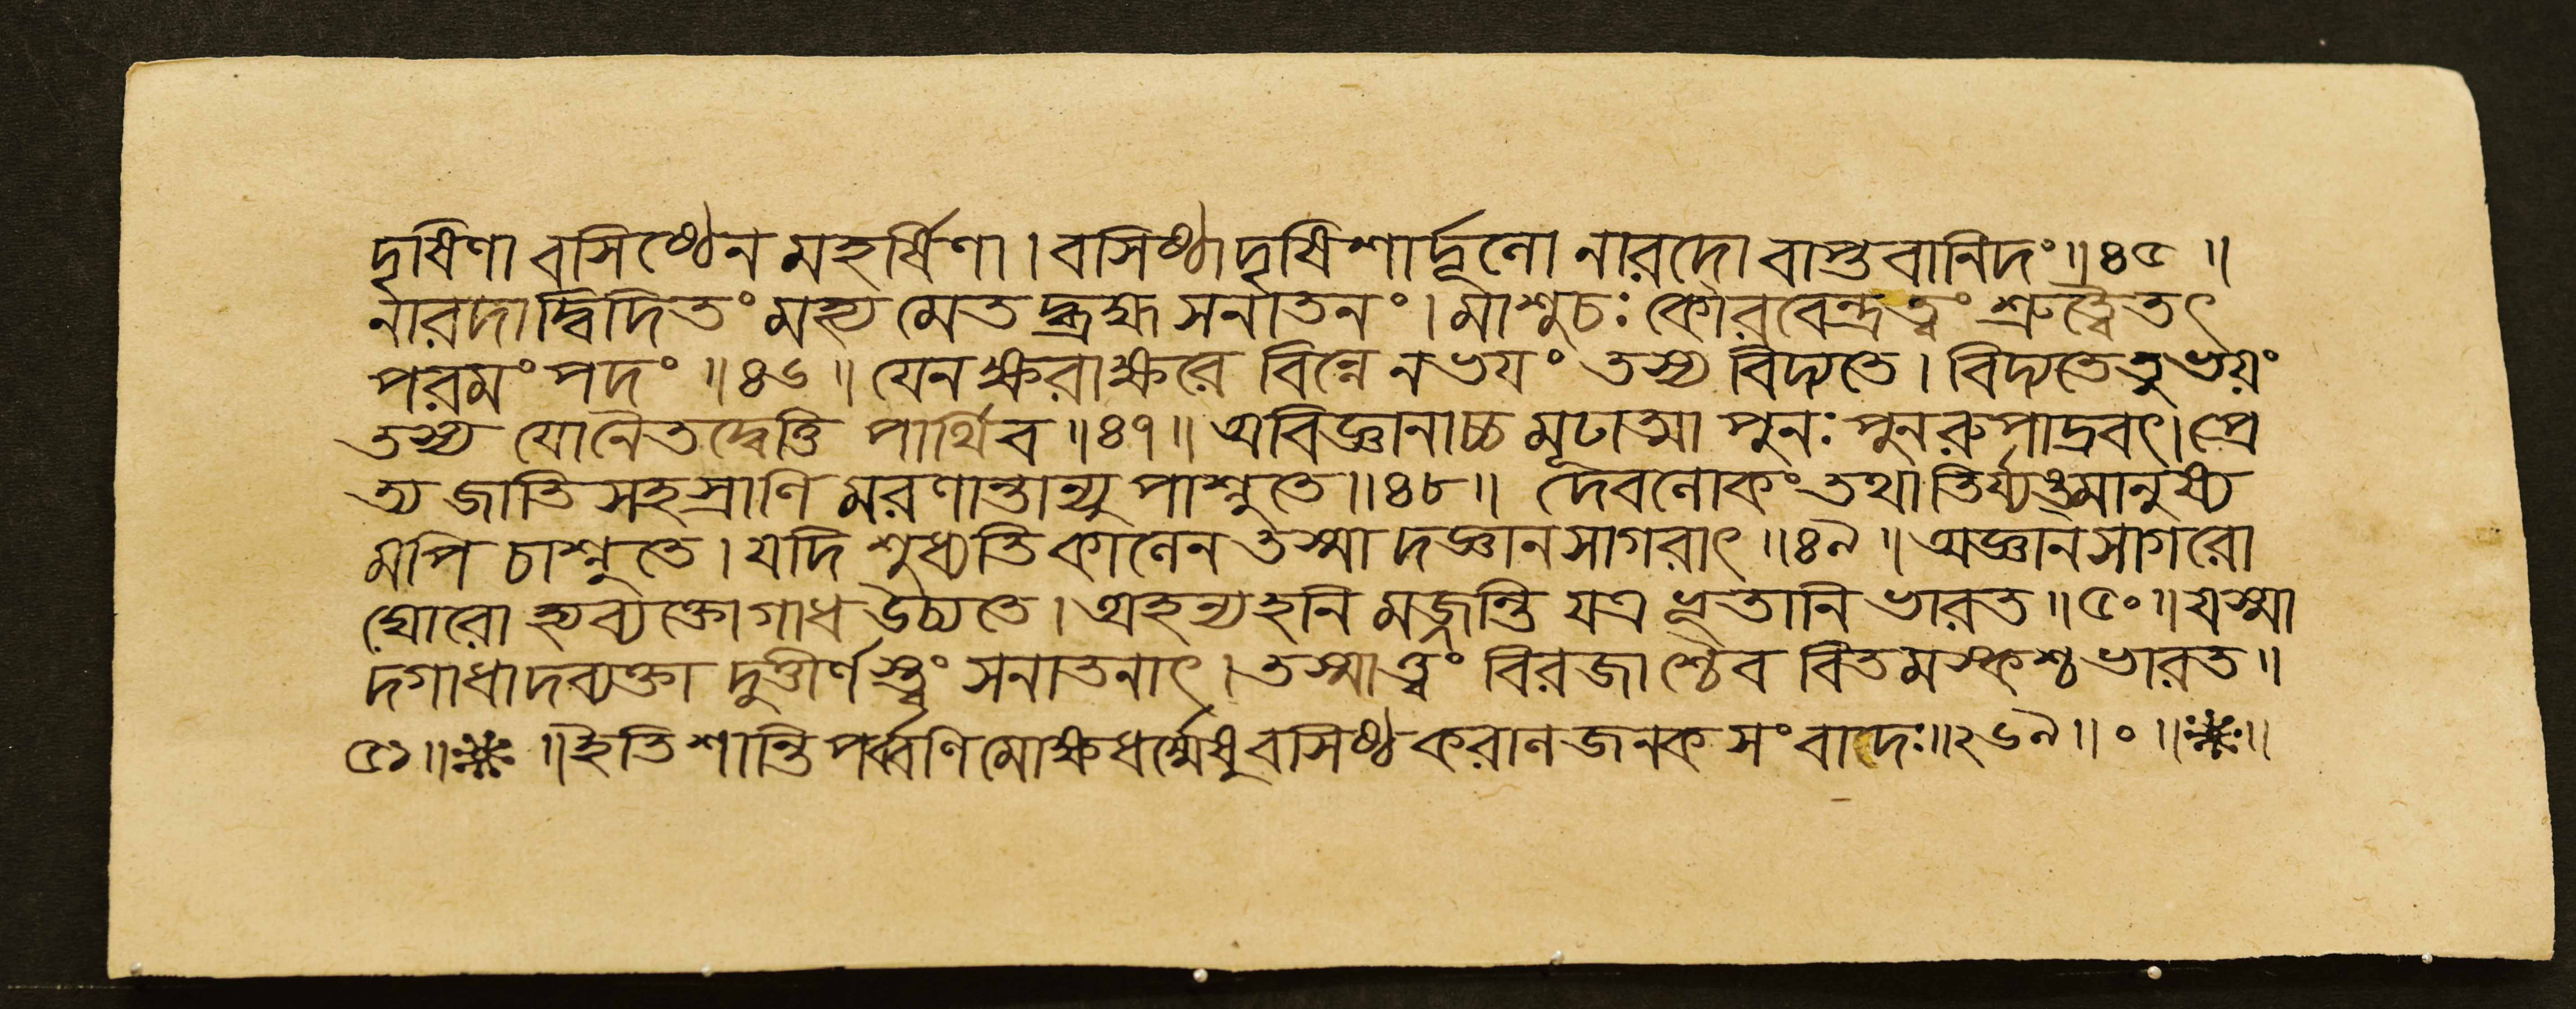 দৃষিণা বসিষ্ঠেন মহর্ষিণা। বসিষ্ঠাদৃষিশার্দূলো নারদো বাপ্তবানিদং॥৪৫॥
নারদাদ্বিদিতং মহ্যমেতদ্ব্রহ্ম সনাতনং। মাশুচঃ কৌরবেন্দ্রত্বং শ্রুত্বৈতৎ
পরমং পদং॥৪৬॥ যেনক্ষরাক্ষরে বিন্নে নভয়ং তস্য বিদ্যতে। বিদ্যতেতুভয়ং
তস্য যোনৈতদ্বেত্তি পার্থিব॥৪৭॥ অবিজ্ঞানাচ্চ মূঢাত্মা পুনঃ পুনরুপাদ্রবৎ। প্রে
ত্য জাতিসহস্রাণি মরণান্তান্যুপাশ্নুতে॥৪৮॥ দেবলোকং তথা তির্য্যঙ্মানুষ্য
মপি চাশ্নুতে। যদি শুধ্যতি কালেন তস্মাদজ্ঞানসাগরাৎ॥৪৯॥ অজ্ঞানসাগরো
ঘোরো হ্যব্যক্তোগাধ উচ্যতে। অহন্যহনি মজ্জন্তি যত্র ভূতানি ভারত॥৫০॥ যস্মা
দগাধাদব্যক্তা দুত্তীর্ণস্ত্বং সনাতনাৎ। তস্মাত্ত্বং বিরজাশ্চৈব বিতমস্কশ্চ ভারত॥
৫১॥ ॥ইতি শান্তিপর্ব্বণি মোক্ষধর্ম্মেষু বসিষ্ঠকরালজনকসংবাদেঃ॥২৬৯॥০॥ ॥